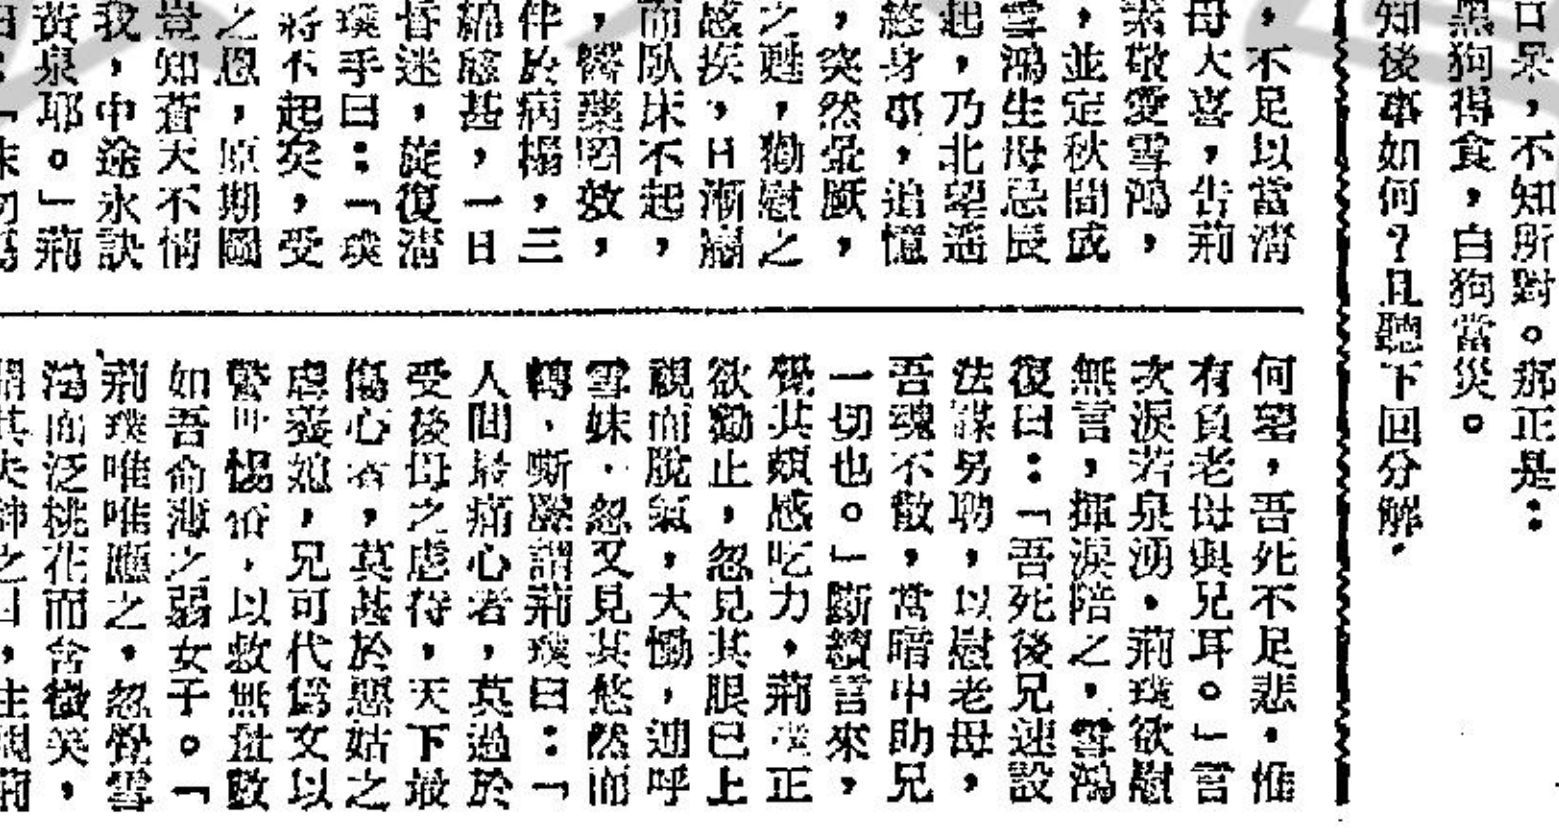 口呆，不知所對。那正是：
黑狗得食，白狗當災。
知後事如何？且聽下回分解，
，不足以當清
母大喜，告荊
素敬愛雪鴻，
，並定秋間成
雪鴻生母忌辰
起，乃北望遙
慈身事，追憶
，突然暈厥，
之甦，勸慰之
感疾，日漸羸
而臥床不起，
，醫藥罔效，
伴於病榻，三
綿慈甚，一日
昏迷，旋復清
璞手曰：「璞
將不起矣，受
之恩，原期圖
豈知蒼天不情
我，中途永訣
黃泉耶。」荊
何望，吾死不足悲，惟
有負老母與兄耳。」言
次淚若泉湧，荊璞欲慰
無言，揮淚陪之，雪鴻
復曰：「吾死後兄速設
法謀另聘，以慰老母，
吾魂不散，當暗中助兄
一切也。」斷續言來，
覺其頗感吃力，荊璞正
欲勸止，忽見其眼已上
視而脫氣，大慟，連呼
雪妹，忽又見其悠然而
轉，嘶聲謂荊璞曰：「
人間最痛心者，莫過於
受後母之虐待，天下最
傷心者，莫甚於惡姑之
虐養媳，兄可代爲文以
驚世惕俗，以救無量數
如吾命薄之弱女子。「
荊璞唯唯應之，忽覺雪
鴻面泛桃花而含微笑，